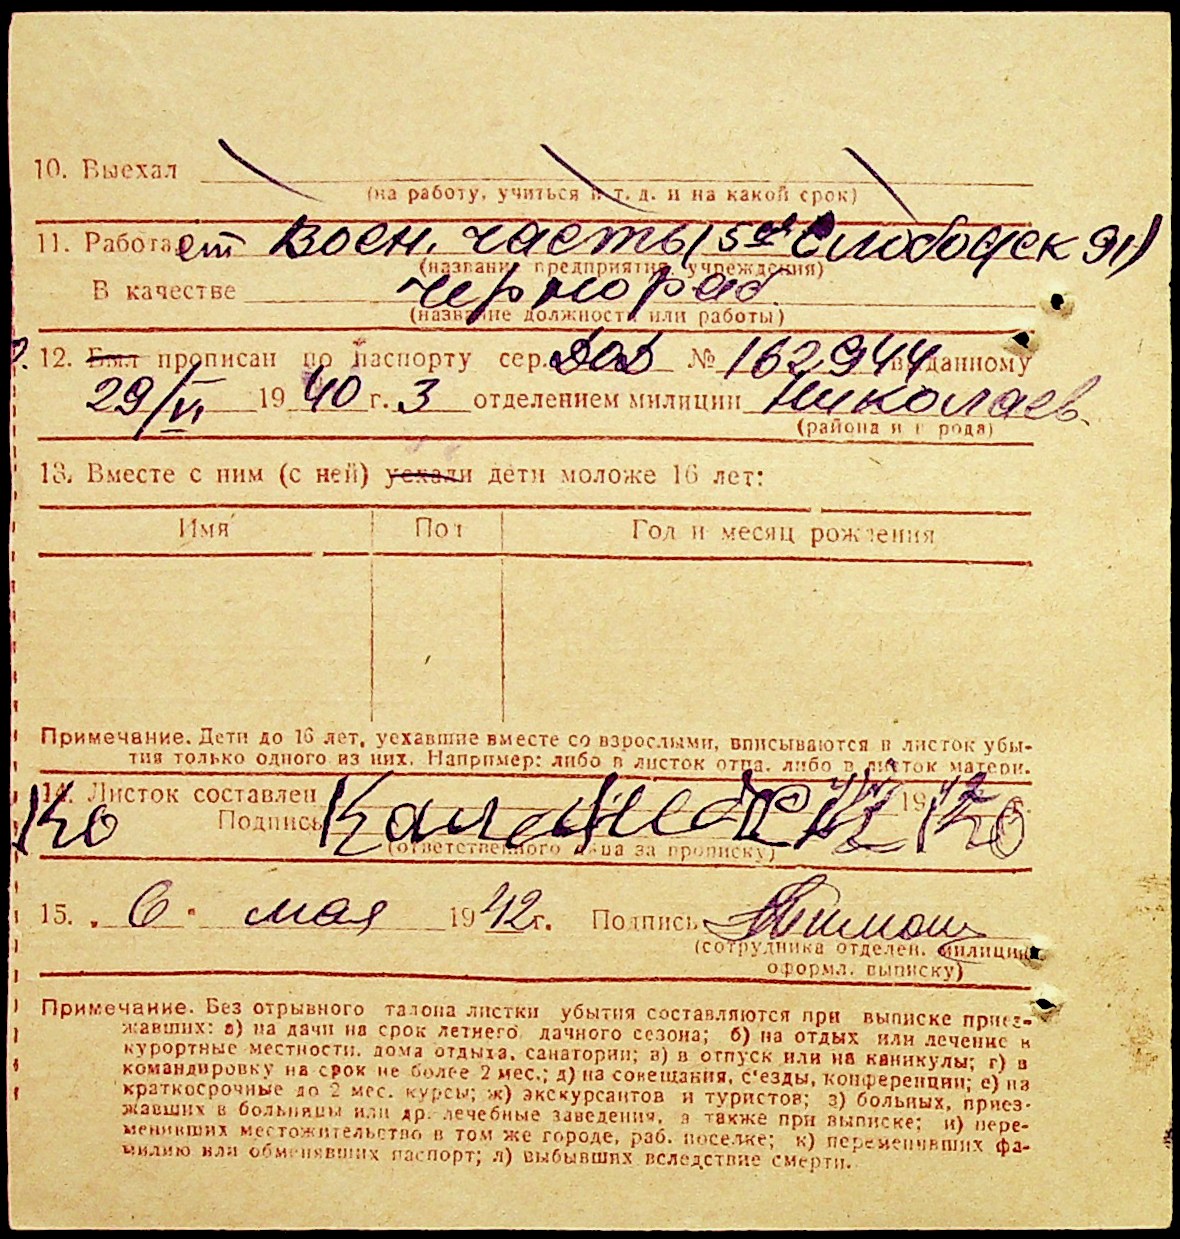 10. Выехал
(на работу, учиться и т. д. и на какой срок)
11. Работает Воен. часть (5ая Слободск 91)
(название предприятия, учреждения)
В качестве чернораб.
(название должности или работы)
12. Был прописан по паспорту сер. № 162944 выданному
29/VI 1940 г. 3 отделением милиции Николаев.
(района и города)
13. Вместе с ним (с ней) уехали дети моложе 16 лет:
Имя Пол Год и месяц рождения
Примечание. Дети до 16 лет, уехавшие вместе со взрослыми, вписываются в листок убы-
тия только одного из них. Например: либо в листок отца, либо в листок матери.
14. Листок составлен 1942 г.
Подпись
(ответственного лица за прописку)
15. „6" мая 1942 г. Подпись
(сотрудника отделен. милиции
оформл. выписку)
Примечание. Без отрывного талона листки убытия составляются при выписке приез-
жавших: а) на дачи на срок летнего дачного сезона; б) на отдых или лечение в
курортные местности, дома отдыха, санатории; в) в отпуск или на каникулы; г) в
командировку на срок не более 2 мес.; д) на совещания, с'езды, конференции; е) на
краткосрочные до 2 мес. курсы; ж) экскурсантов и туристов; з) больных, приез-
жавших в больницы или др. лечебные заведения, а также при выписке; и) пере-
менивших местожительство в том же городе, раб. поселке; к) переменивших фа-
милию или обменявших паспорт; л) выбывших вследствие смерти.